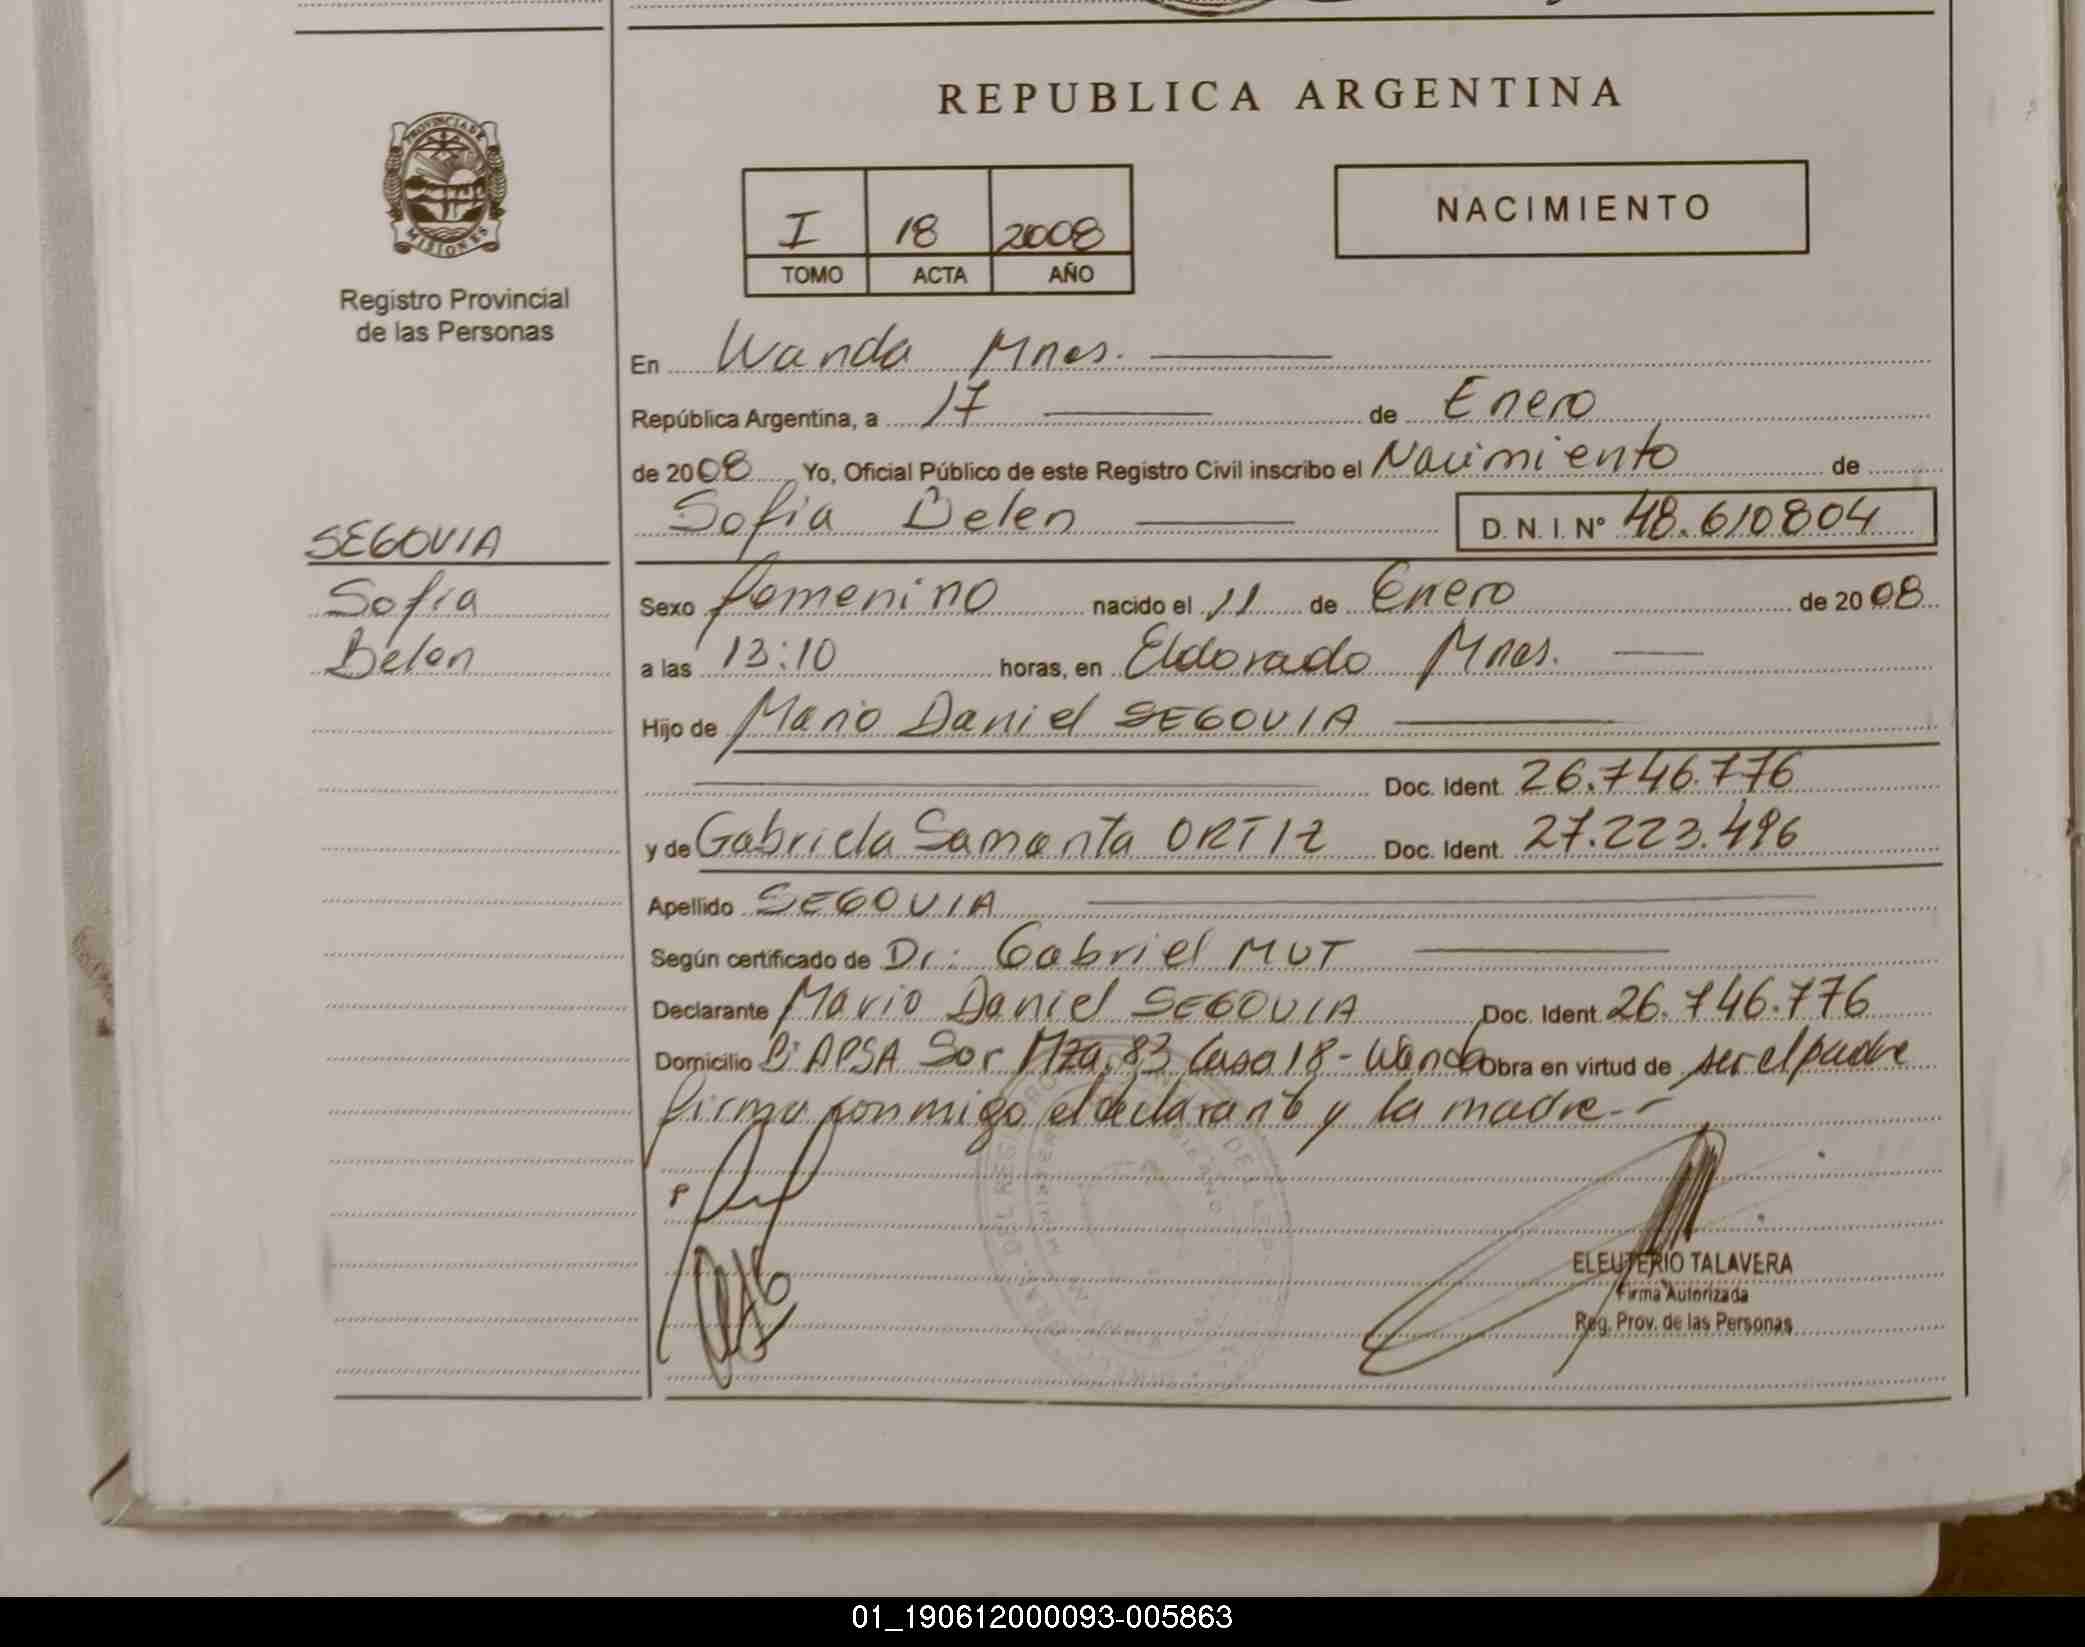 REPUBLICA ARGENTINA
PROVINCIA DE
MISIONES
Registro Provincial
de las Personas
I 18 2008
TOMO ACTA AÑO
NACIMIENTO
En Wanda Mnes.
República Argentina, a 17 de Enero
de 2008 Yo, Oficial Público de este Registro Civil inscribo el Nacimiento de
Sofia Belen D. N. I. N° 48.610804
SEGOVIA
Sofia
Belen
Sexo femenino nacido el 11 de Enero de 2008
a las 13:10 horas, en Eldorado Mnes.
Hijo de Mario Daniel SEGOVIA
Doc. Ident. 26.746.776
y de Gabriela Samanta ORTIZ Doc. Ident. 27.223.496
Apellido SEGOVIA
Según certificado de Dr: Gabriel MUT
Declarante Mario Daniel SEGOVIA Doc. Ident. 26.746.776
Domicilio B° APSA Sor Mza. 83 Casa 18 - Wanda Obra en virtud de ser el padre
firma conmigo el declarante y la madre.-
ELEUTERIO TALAVERA
Firma Autorizada
Reg. Prov. de las Personas
01_190612000093-005863